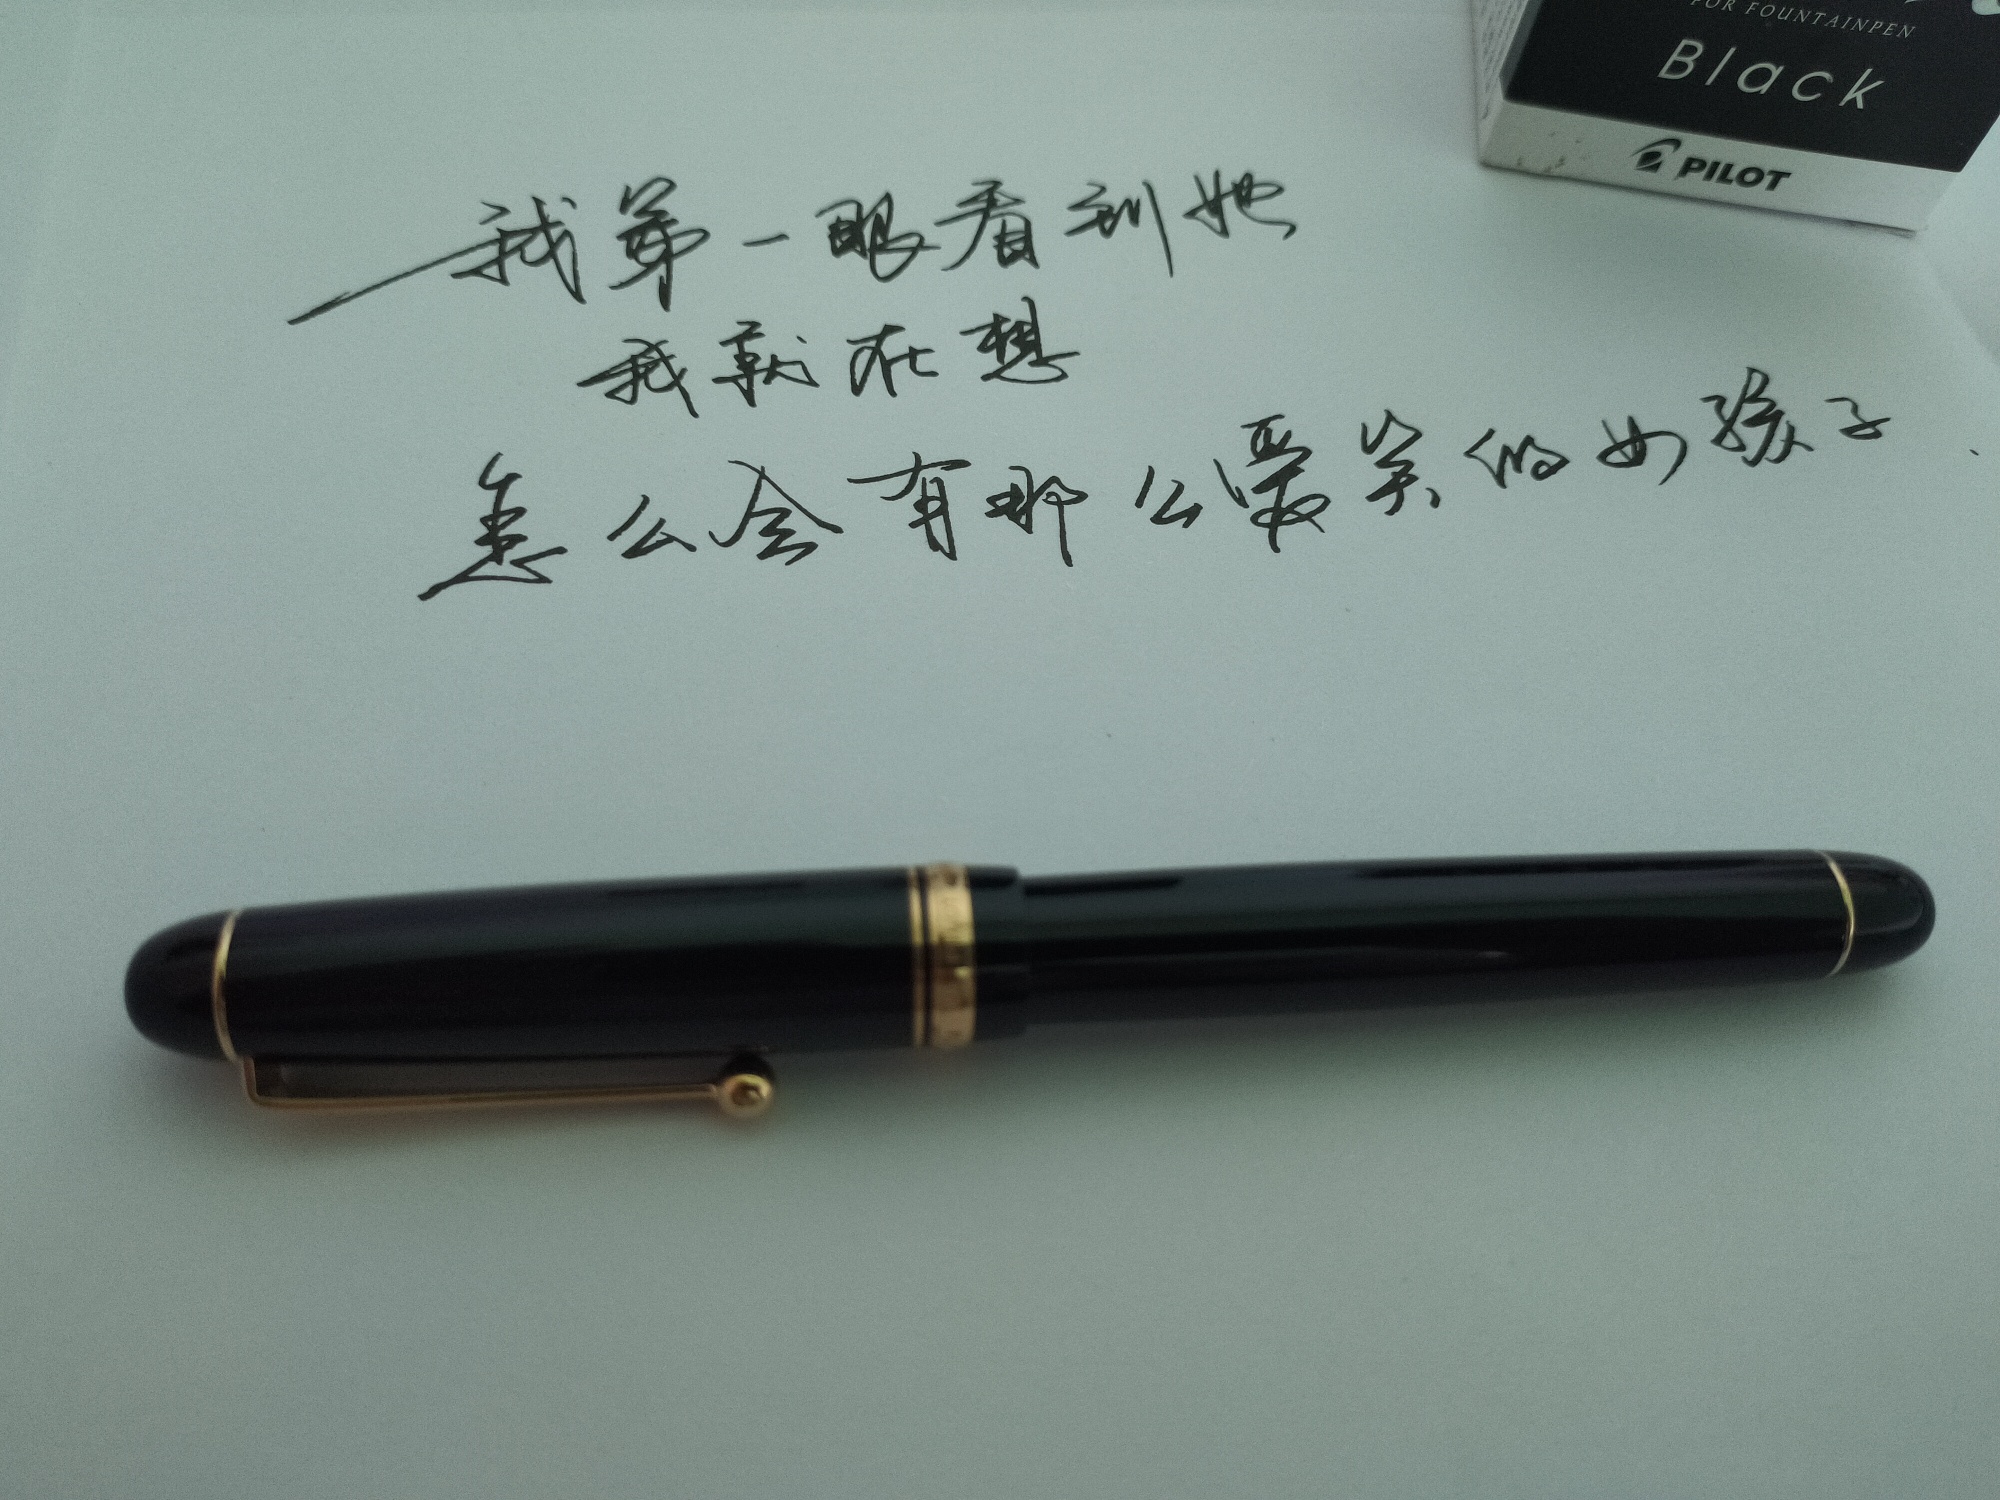 FOR FOUNTAINPEN
Black
PILOT
我第一眼看到她
我就在想
怎么会有那么爱笑的女孩子